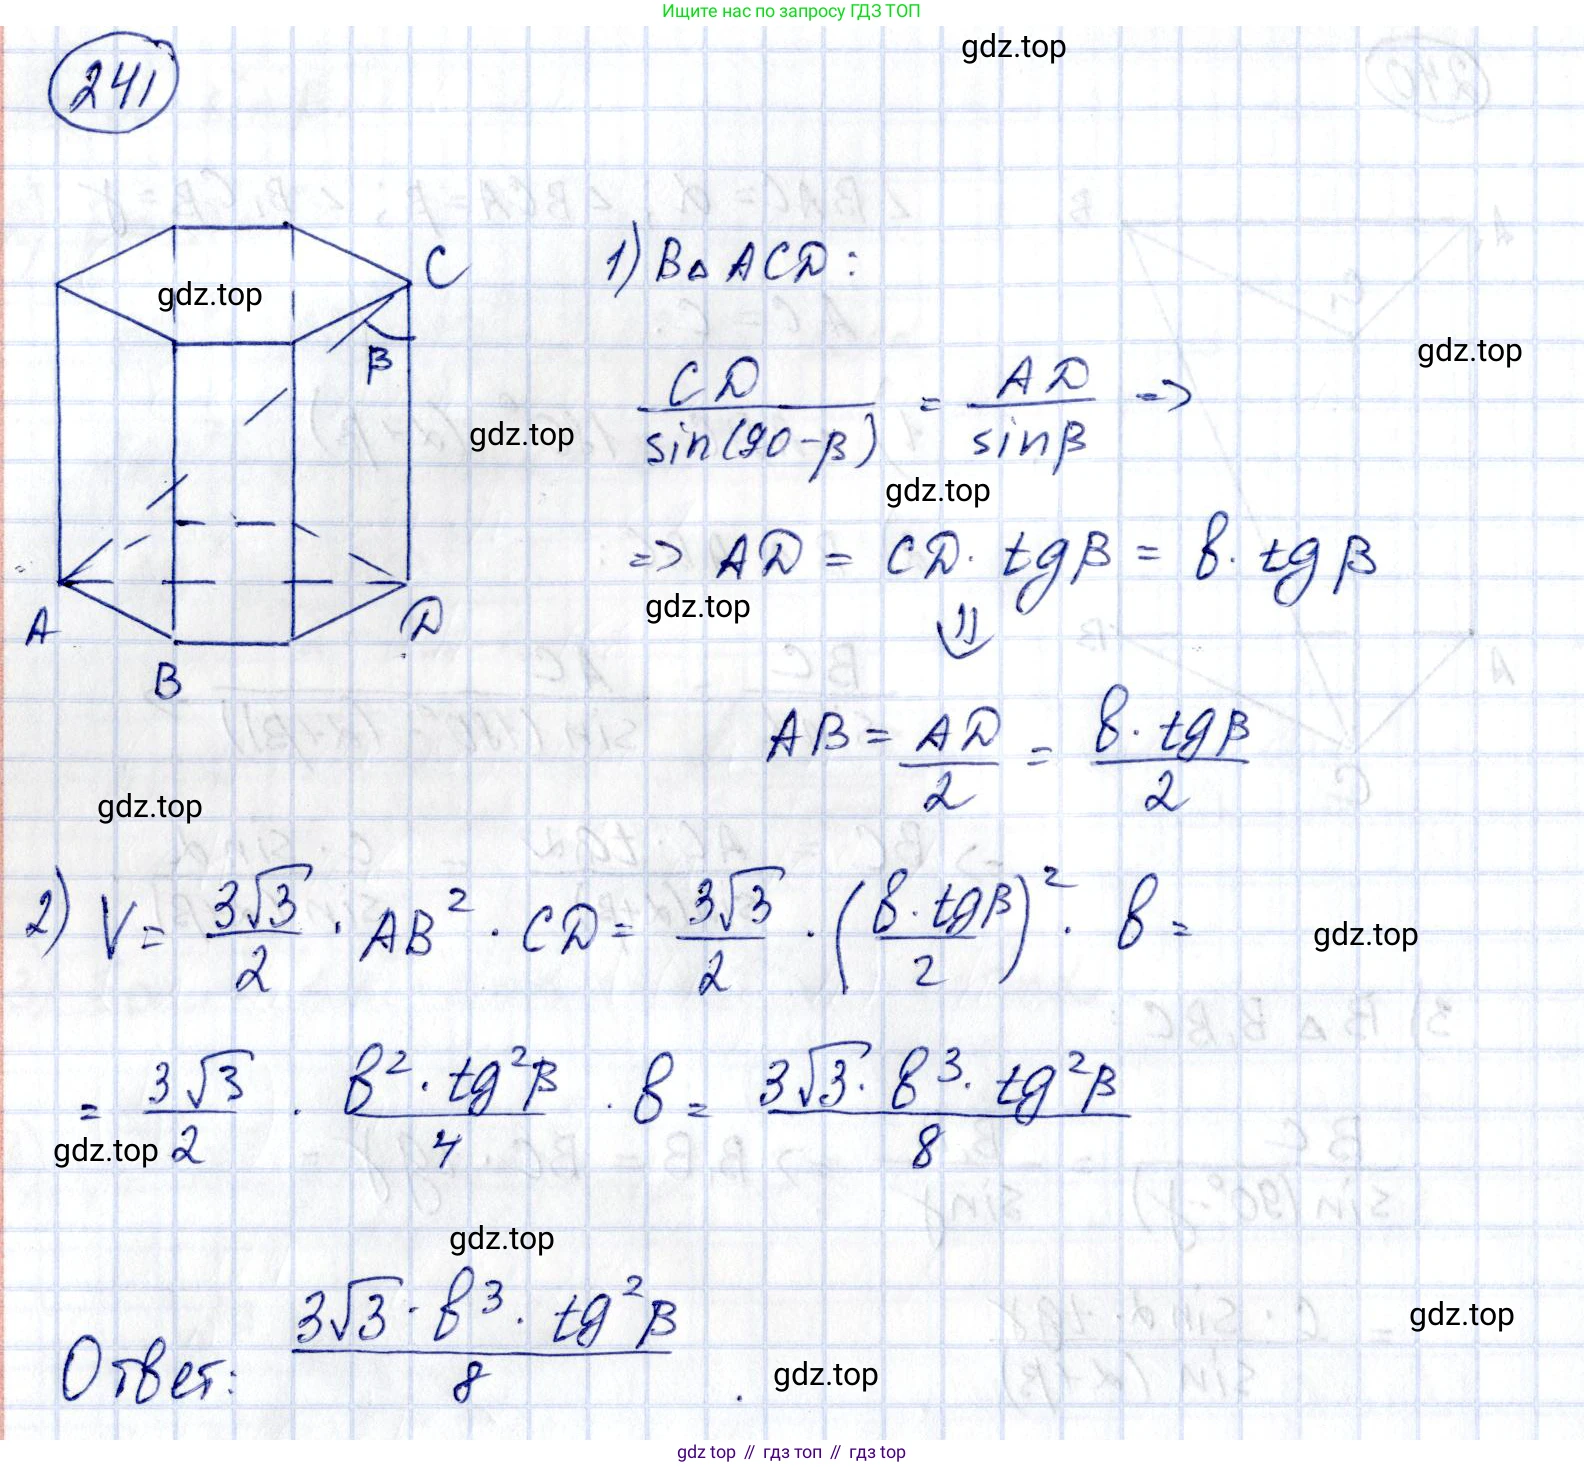 Ищите нас по запросу ГДЗ ТОП
gdz.top
241
C
gdz.top
β
A
B
D
1) В △ ACD:
gdz.top
CD / sin(90-β) = AD / sinβ =>
gdz.top
gdz.top
=> AD = CD · tgβ = в · tgβ
gdz.top
⇓
AB = AD / 2 = в · tgβ / 2
gdz.top
2) V = 3√3 / 2 · AB² · CD = 3√3 / 2 · (в · tgβ / 2)² · в =
gdz.top
= 3√3 / 2 · в² · tg²β / 4 · в = 3√3 · в³ · tg²β / 8
gdz.top
gdz.top
Ответ: 3√3 · в³ · tg²β / 8 .
gdz.top
gdz.top
gdz top // гдз топ // гдз top